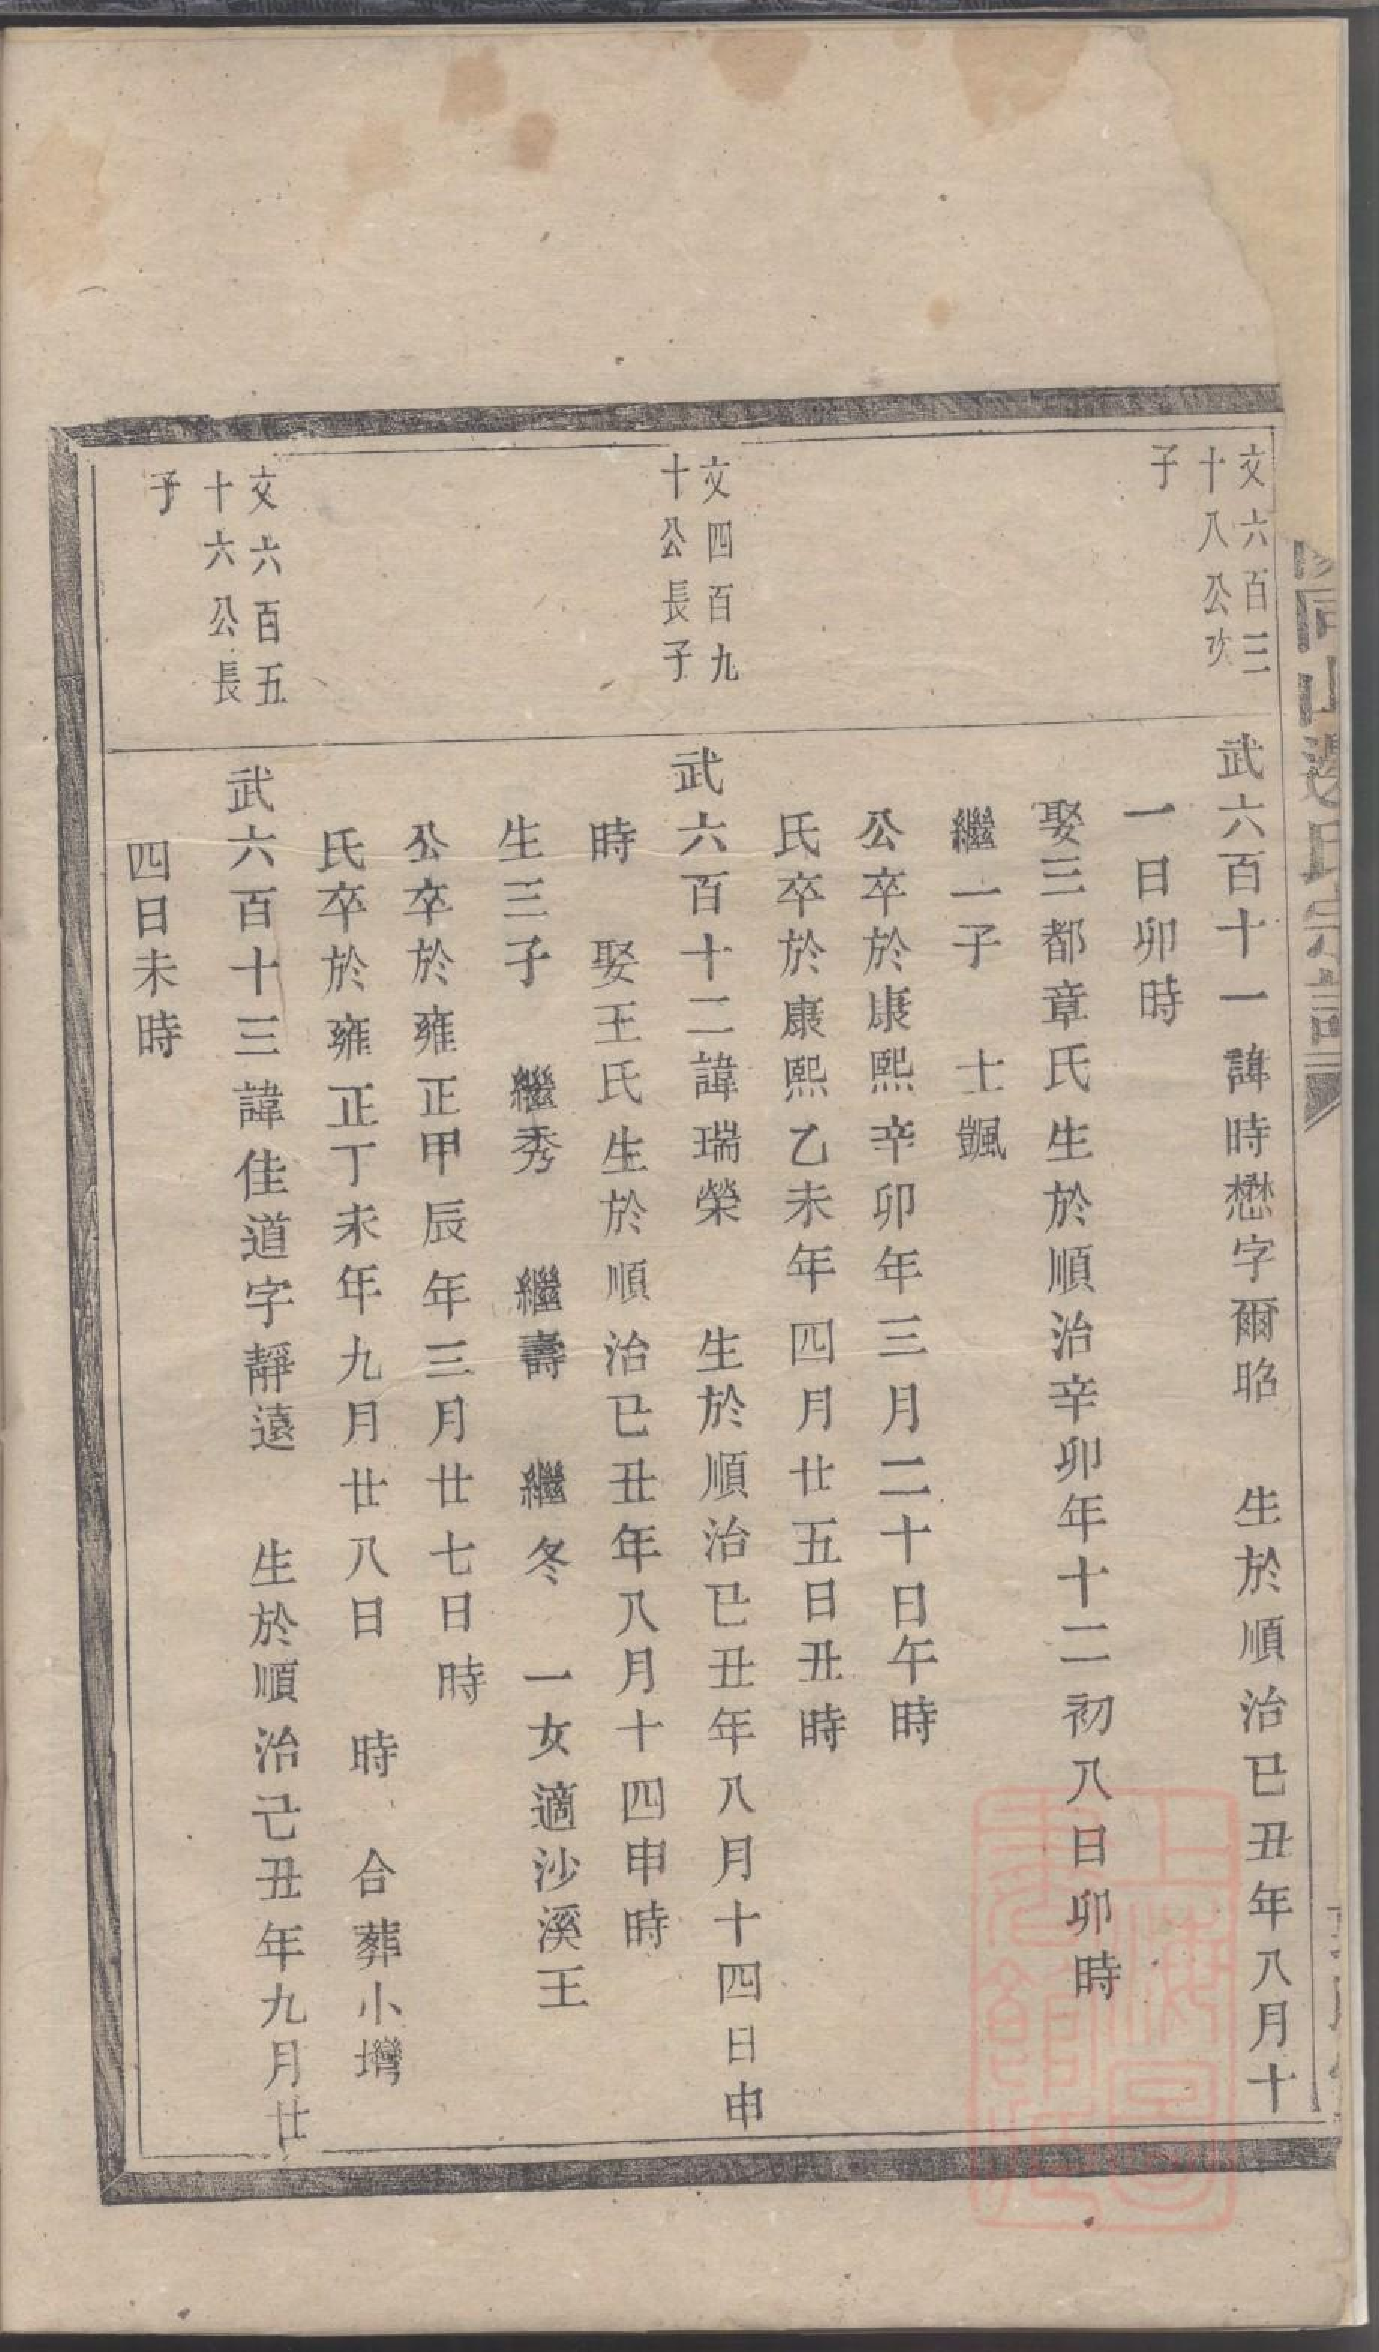 文六百三
十八公次
子
武六百十一諱時懋字爾昭 生於順治已丑年八月十
一日卯時
娶三都章氏生於順治辛卯年十二初八日卯時
繼一子 士颽
公卒於康熙辛卯年三月二十日午時
氏卒於康熙乙未年四月廿五日丑時
文四百九
十公長子
武六百十二諱瑞榮 生於順治已丑年八月十四日申
時 娶王氏生於順治已丑年八月十四申時
生三子 繼秀 繼壽 繼冬 一女適沙溪王
公卒於雍正甲辰年三月廿七日時
氏卒於雍正丁未年九月廿八日 時 合葬小塆
文六百五
十六公長
子
武六百十三諱佳道字靜遠 生於順治己丑年九月廿
四日未時
山邊氏宗譜
上海圖書館藏